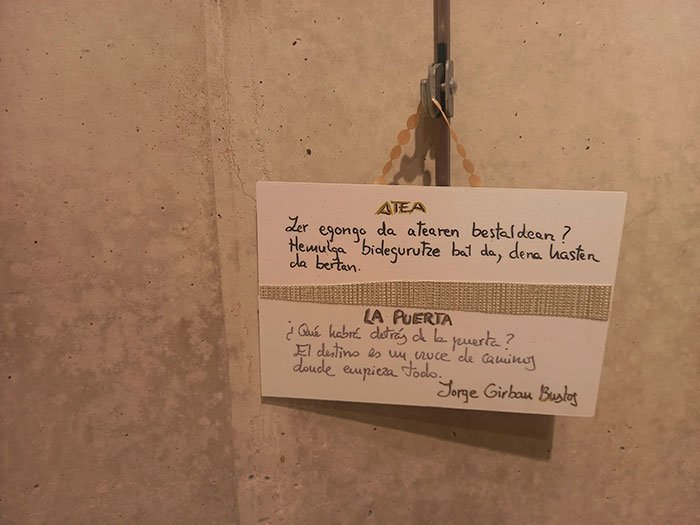 ATEA
Zer egongo da atearen bestaldean?
Helmuga bidegurutze bat da, dena hasten
da bertan.
LA PUERTA
¿Qué habrá detrás de la puerta?
El destino es un cruce de caminos
donde empieza todo.
Jorge Girbau Bustos